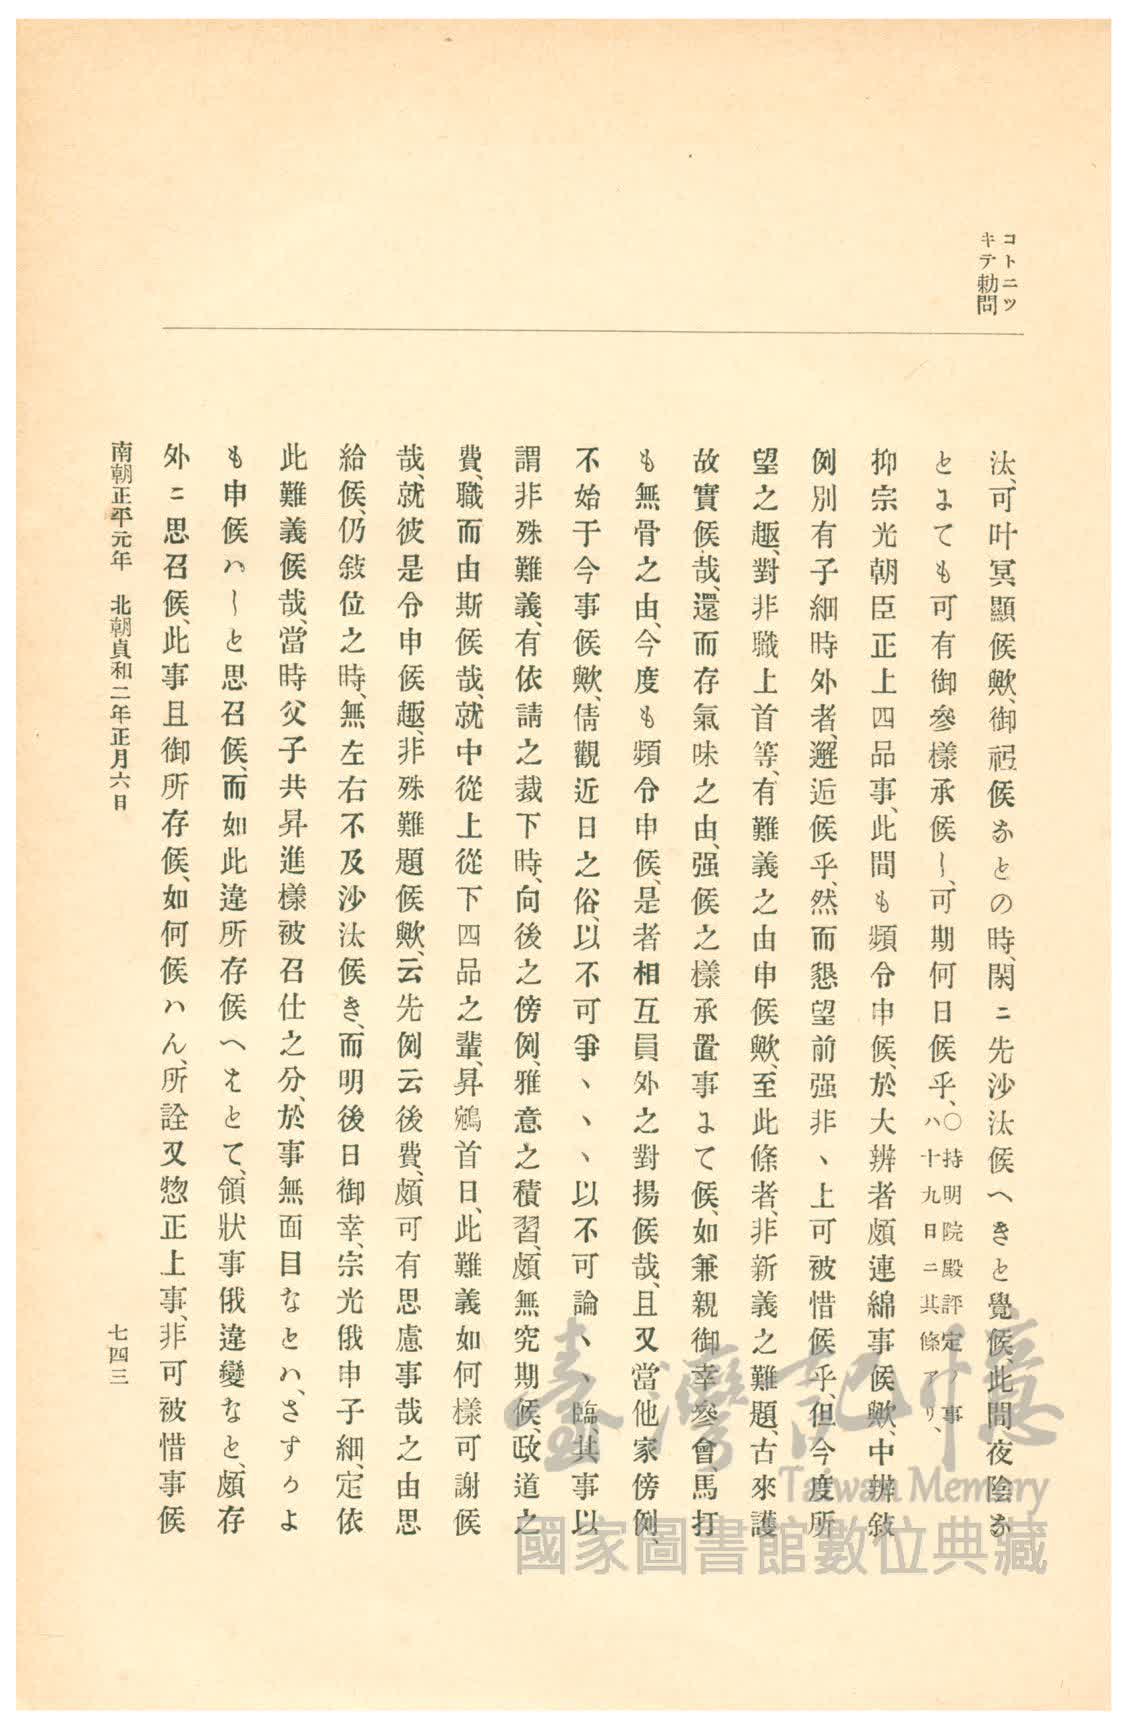 コトニツ
キテ勅問
汰、可叶冥顯候歟、御祖候なとの時、閑ニ先沙汰候へきと覺候、此間、夜陰な
とよても可有御參樣承候し、可期何日候乎、○持明院殿評定ノ事
ハ十九日ニ其條アリ、
抑宗光朝臣正上四品事、此間も頻令申候、於大辨者頗連綿事候歟、中辨敍
例別有子細時外者、邂逅候乎、然而懇望前强非、上可被惜候乎、但今度所
望之趣、對非職上首等、有難義之由申候歟、至此條者、非新義之難題、古來護
故實候哉、還而存氣味之由、强候之樣承置事よて候、如兼親御幸參會、馬打
も無骨之由、今度も頻令申候、是者相互員外之對揚候哉、且又當他家傍例、
不始于今事候歟、倩觀近日之俗、以不可爭、、、以不可論、、臨其事以
謂非殊難義、有依請之裁下時、向後之傍例、雅意之積習、頗無究期候、政道之
費、職而由斯候哉、就中從上從下四品之輩、昇鵷首日、此難義如何樣可謝候
哉、就彼是令申候趣、非殊難題候歟、云先例云後費、頗可有思慮事哉之由思
給候、仍敍位之時、無左右不及沙汰候き、而明後日御幸、宗光俄申子細、定依
此難義候哉、當時父子共昇進樣被召仕之分、於事無面目なとハ、さすかよ
も申候ハしと思召候、而如此違所存候へはとて、領狀事俄違變なと、頗存
外ニ思召候、此事且御所存候、如何候ハん、所詮又惣正上事、非可被惜事候
南朝正平元年 北朝貞和二年正月六日
七四三
臺灣記憶
Taiwan Memory
國家圖書館數位典藏